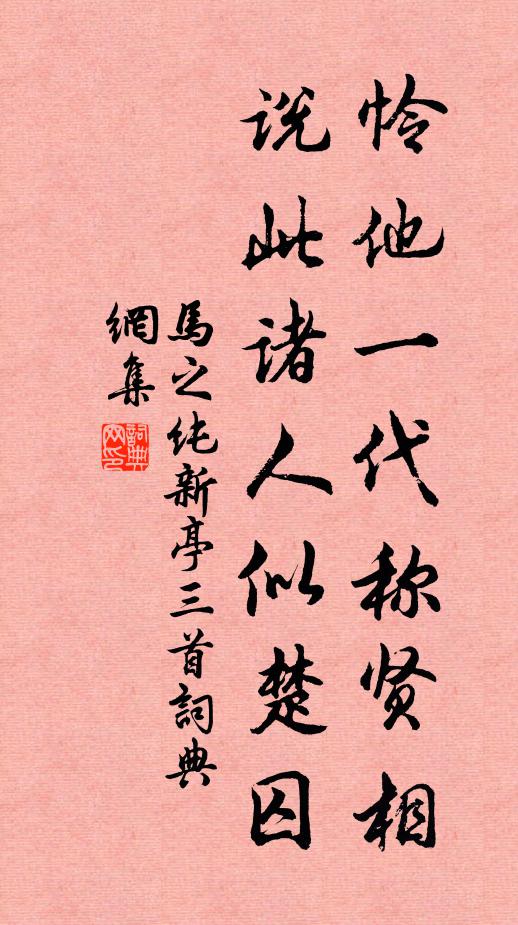 怜他一代称贤相
说此诸人似楚囚
馬之纯新亭三首詞典
網集
詞典
网印